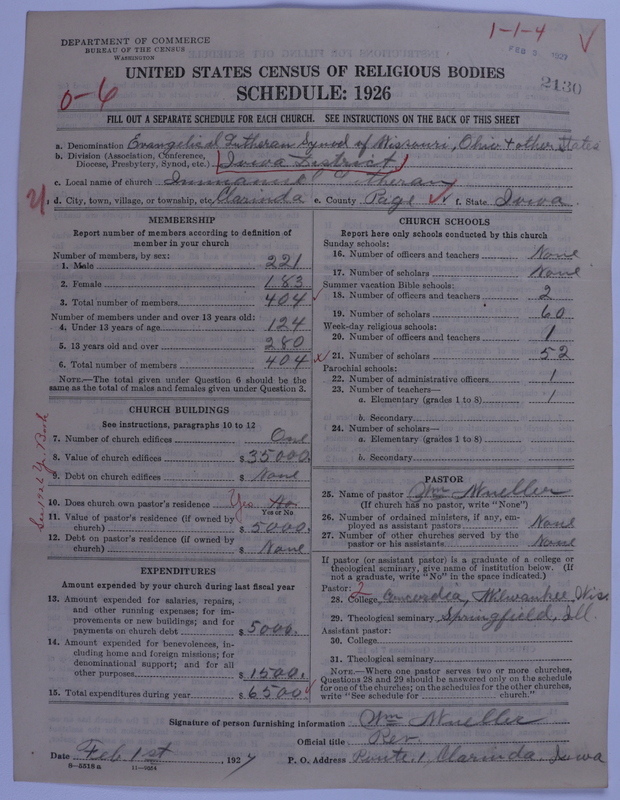 1-1-4
FEB 9, 1927
2130
DEPARTMENT OF COMMERCE
BUREAU OF THE CENSUS
WASHINGTON
UNITED STATES CENSUS OF RELIGIOUS BODIES
SCHEDULE: 1926
0-6
FILL OUT A SEPARATE SCHEDULE FOR EACH CHURCH. SEE INSTRUCTIONS ON THE BACK OF THIS SHEET
a. Denomination Evangelical Lutheran Synod of Missouri, Ohio + other States
b. Division (Association, Conference,
Diocese, Presbytery, Synod, etc.) Iowa District
c. Local name of church Immanuel Lutheran
d. City, town, village, or township, etc. Clarinda e. County Page f. State Iowa
MEMBERSHIP
Report number of members according to definition of
member in your church
Number of members, by sex:
1. Male 221
2. Female 183
3. Total number of members 404
Number of members under and over 13 years old:
4. Under 13 years of age 124
5. 13 years old and over 280
6. Total number of members 404
NOTE.—The total given under Question 6 should be the
same as the total of males and females given under Question 3.
CHURCH BUILDINGS
See instructions, paragraphs 10 to 12
7. Number of church edifices One
8. Value of church edifices $ 35000.
9. Debt on church edifices $ None
10. Does church own pastor's residence Yes No
Yes or No
11. Value of pastor's residence (if owned by
church) $ 5000.
12. Debt on pastor's residence (if owned by
church) $ None
See 1926 Yr. Book
EXPENDITURES
Amount expended by your church during last fiscal year
13. Amount expended for salaries, repairs,
and other running expenses; for im-
provements or new buildings; and for
payments on church debt $ 5000.
14. Amount expended for benevolences, in-
cluding home and foreign missions; for
denominational support; and for all
other purposes $ 1500.
15. Total expenditures during year $ 6500.
CHURCH SCHOOLS
Report here only schools conducted by this church
Sunday schools:
16. Number of officers and teachers None
17. Number of scholars None
Summer vacation Bible schools:
18. Number of officers and teachers 2
19. Number of scholars 60
Week-day religious schools:
20. Number of officers and teachers 1
x 21. Number of scholars 52
Parochial schools:
22. Number of administrative officers 1
23. Number of teachers—
a. Elementary (grades 1 to 8) 1
b. Secondary
24. Number of scholars—
a. Elementary (grades 1 to 8)
b. Secondary
PASTOR
25. Name of pastor Wm Mueller
(If church has no pastor, write "None")
26. Number of ordained ministers, if any, em-
ployed as assistant pastors None
27. Number of other churches served by the
pastor or his assistants None
If pastor (or assistant pastor) is a graduate of a college or
theological seminary, give name of institution below. (If
not a graduate, write "No" in the space indicated.)
Pastor: 2
28. College Concordia, Milwaukee, Wis.
29. Theological seminary Springfield, Ill.
Assistant pastor:
30. College
31. Theological seminary
NOTE.—Where one pastor serves two or more churches,
Questions 28 and 29 should be answered only on the schedule
for one of the churches; on the schedules for the other churches,
write "See schedule for church."
Signature of person furnishing information Wm Mueller
Official title Rev.
Date Feb 1st, 1927 P. O. Address Route 1, Clarinda, Iowa
8—5518 a 11—9554